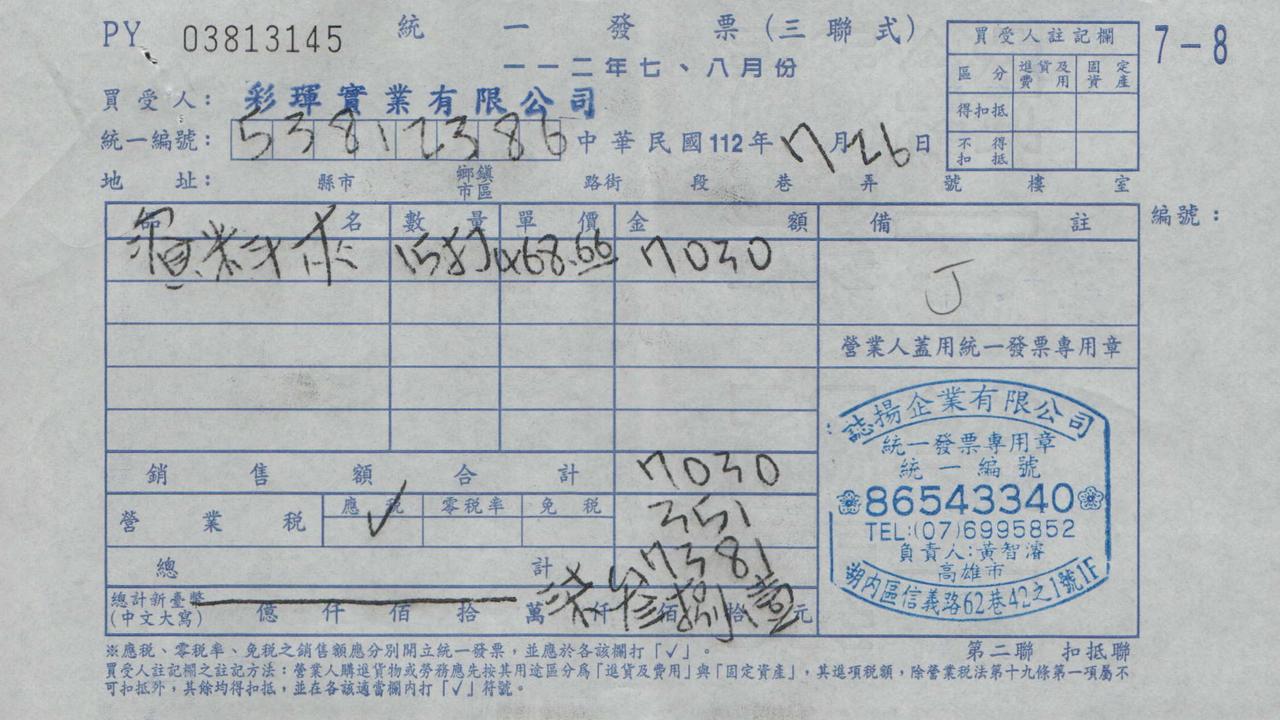 PY 03813145 統一發票(三聯式) 7-8
一一二年七、八月份
買受人註記欄
區分 進貨及費用 固定資產
得扣抵
不得扣抵
買受人: 彩琿實業有限公司
統一編號: 53812386 中華民國112年7月26日
地址: 縣市 鄉鎮市區 路街 段 巷 弄 號 樓 室
品名 數量 單價 金額 備註 編號:
7030 J
營業人蓋用統一發票專用章
銷售額合計 7030
營業稅 應稅 ✓ 零稅率 免稅 351
總計 7381
總計新臺幣(中文大寫) 億 仟 佰 拾 萬 柒仟參佰捌拾壹元
誌揚企業有限公司
統一發票專用章
統一編號
86543340
TEL:(07)6995852
負責人:黃智濬
高雄市
湖內區信義路62巷42之1號1F
※應稅、零稅率、免稅之銷售額應分別開立統一發票,並應於各該欄打「✓」。 第二聯 扣抵聯
買受人註記欄之註記方法:營業人購進貨物或勞務應先按其用途區分為「進貨及費用」與「固定資產」,其進項稅額,除營業稅法第十九條第一項屬不
可扣抵外,其餘均得扣抵,並在各該適當欄內打「✓」符號。